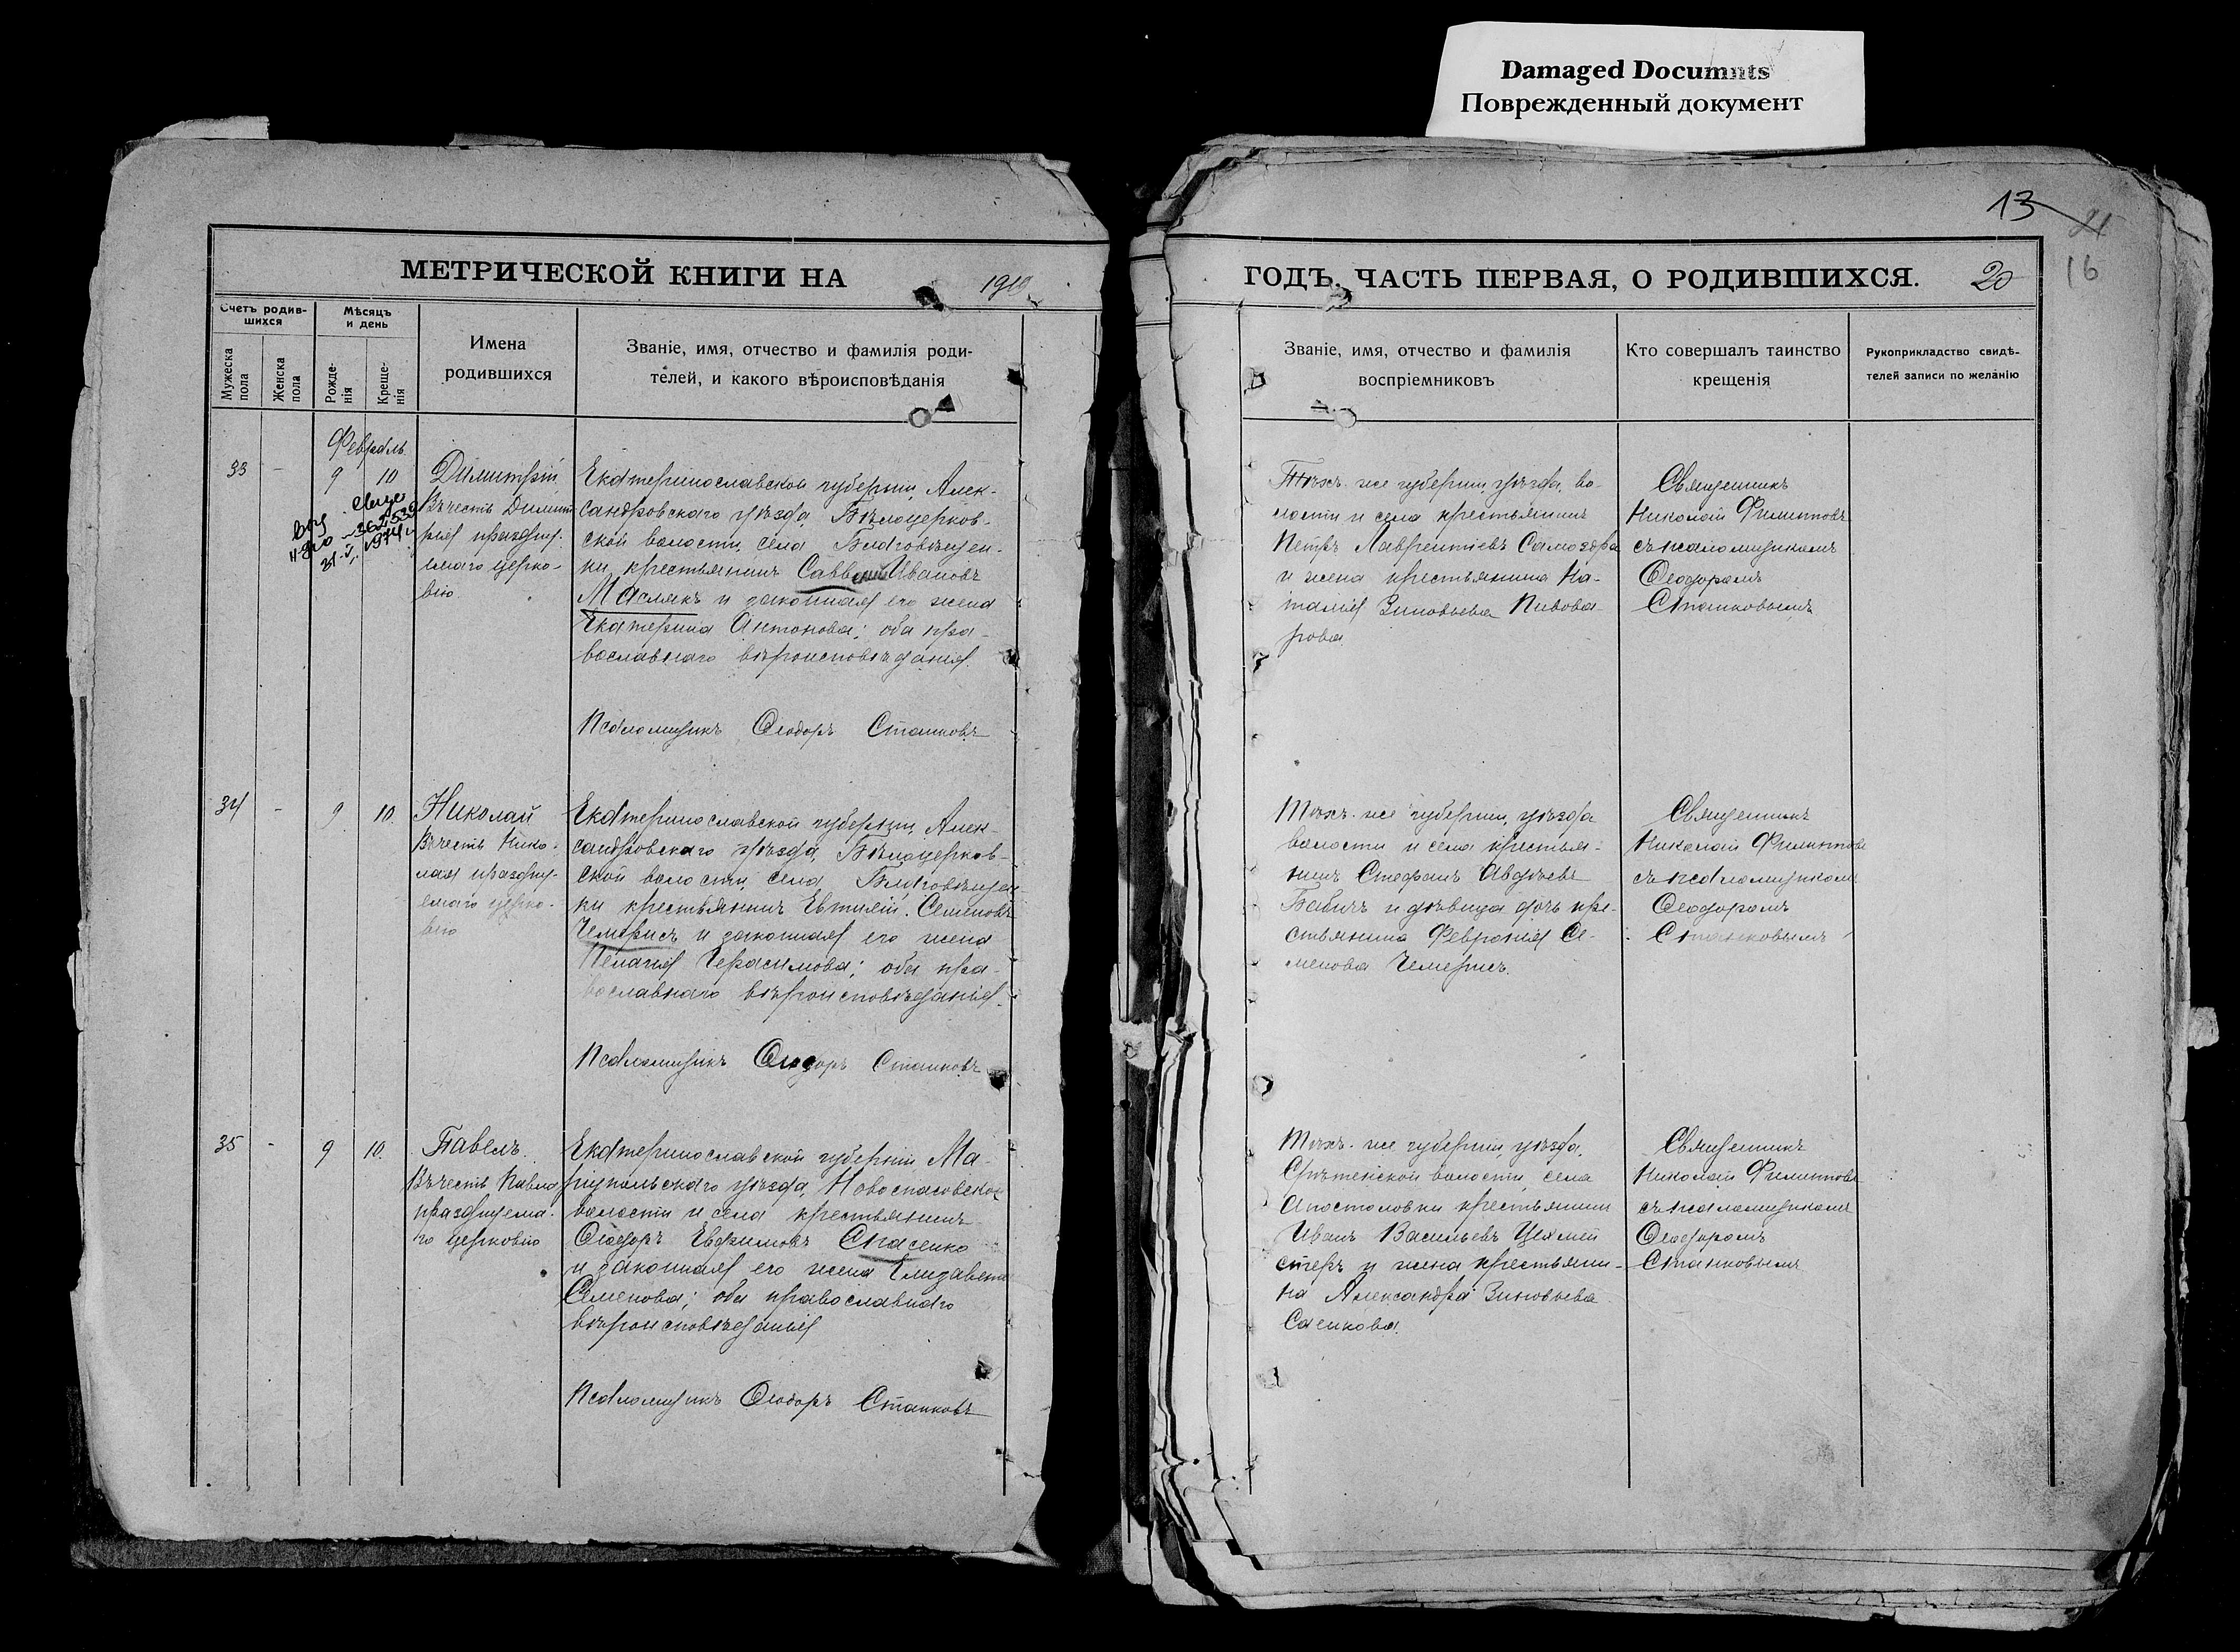 Damaged Documents
Поврежденный документ
13
16
МЕТРИЧЕСКОЙ КНИГИ НА 1910
ГОДЪ, ЧАСТЬ ПЕРВАЯ, О РОДИВШИХСЯ. 20
Счетъ родив-
шихся
Мужеска
пола
Женска
пола
Мѣсяцъ
и день
Рожде-
нія
Креще-
нія
Имена
родившихся
Званіе, имя, отчество и фамилія роди-
телей, и какого вѣроисповѣданія
Званіе, имя, отчество и фамилія
воспріемниковъ
Кто совершалъ таинство
крещенія
Рукоприкладство свидѣ-
телей записи по желанію
Февраль
33 - 9 10
Димитрій
Въ честь Димит
рія праздну-
емаго церко-
вію
Екатеринославской губерніи, Алек-
сандровскаго уѣзда, Бѣлоцерков-
ской волости, села Благовѣщен-
ки, крестьянинъ Савва Ивановъ
Маслякъ и законная его жена
Екатерина Антонова; оба пра-
вославнаго вѣроисповѣданія.
Псаломщикъ Ѳеодоръ Сташковъ
Тѣхъ-же губерніи, уѣзда, во-
лости и села крестьянинъ
Петръ Лаврентіевъ Самоздра
и жена крестьянина На-
талія Зиновьева Пивова-
рова
Священникъ
Николай Филипповъ
съ псаломщикомъ
Ѳеодоромъ
Сташковымъ
34 - 9 10.
Николай
Въ честь Нико-
лая празdну-
емаго церко-
вію
Екатеринославской губерніи, Алек-
сандровскаго уѣзда, Бѣлоцерков-
ской волости, села Благовѣщен-
ки крестьянинъ Евтихій Семеновъ
Чемерисъ и законная его жена
Пелагія Герасимова; оба пра-
вославнаго вѣроисповѣданія.
Псаломщикъ Ѳеодоръ Сташковъ
Тѣхъ-же губерніи, уѣзда
волости и села крестья-
нинъ Стефанъ Авдѣевъ
Бабичъ и дѣвица дочь кре-
стьянина Февронія Се-
менова Чемерисъ.
Священникъ
Николай Филипповъ
съ псаломщикомъ
Ѳеодоромъ
Сташковымъ
35 - 9 10.
Павелъ.
Въ честь Павла
празднуема-
го церковію
Екатеринославской губерніи, Ма-
ріупольскаго уѣзда, Новоспасовской
волости и села крестьянинъ
Ѳеодоръ Евфимовъ Спасенко
и законная его жена Елизавета
Семенова; оба православнаго
вѣроисповѣданія
Псаломщикъ Ѳеодоръ Сташковъ
Тѣхъ-же губерніи, уѣзда,
Срѣтенской волости, села
Апостоловки крестьянинъ
Иванъ Васильевъ
и жена крестьяни-
на Александра Зиновьева
Священникъ
Николай Филипповъ
съ псаломщикомъ
Ѳеодоромъ
Сташковымъ